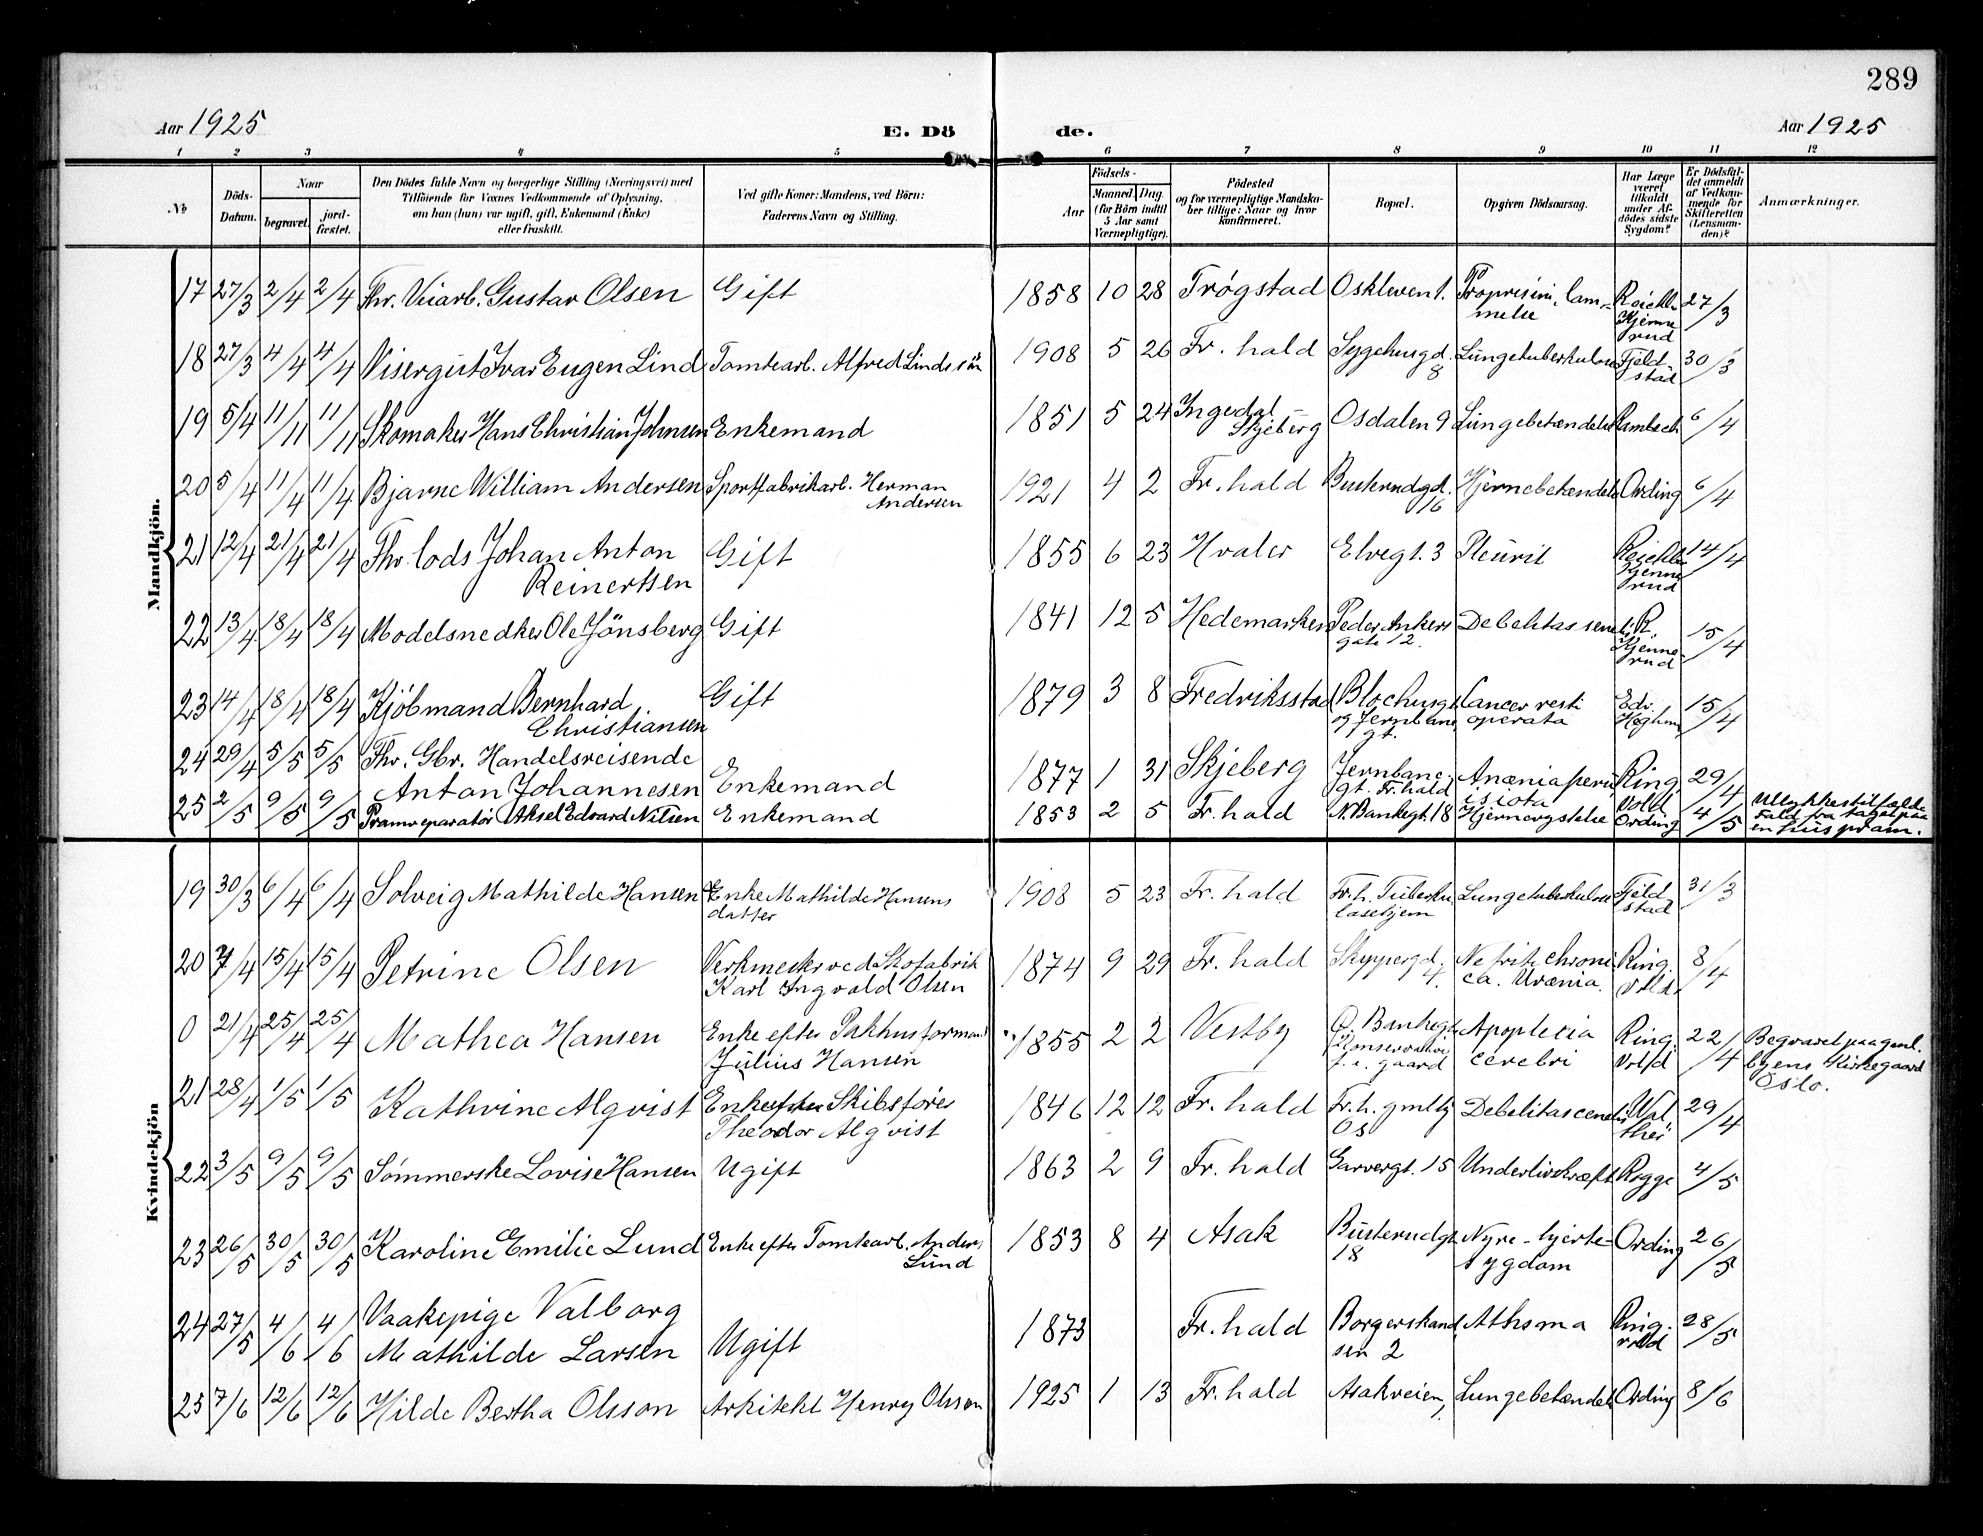 289
Aar 1925
E. Dö de.
Aar 1925
1 2 3 4 5 6 7 8 9 10 11 12
No
Döds-Datum.
Naar
begravet.
jord-fæstet.
Den Dödes fulde Navn og borgerlige Stilling (Næringsvei) med
Tilföiende for Voxnes Vedkommende af Oplysning,
om han (hun) var ugift, gift, Enkemand (Enke)
eller fraskilt.
Ved gifte Koner: Mandens, ved Börn:
Faderens Navn og Stilling.
Födsels-
Aar
Maaned Dag
(for Börn indtil
5 Aar samt
Værnepligtige).
Födested
og for værnepligtige Mandska-
ber tillige: Naar og hvor
konfirmeret.
Bopæl.
Opgiven Dödsaarsag.
Har Læge
været
tilkaldt
under Af-
dödes sidste
Sygdom?
Er Dödsfal-
det anmeldt
af Vedkom-
mende for
Skifteretten
(Lensman-
den)?
Anmærkninger.
Mandkjön.
17 27/3 2/4 2/4 Fhv. Viarb. Gustav Olsen Gift 1858 10 28 Trøgstad Oskleven 1. 27/3
Kjenne
rud
18 27/3 4/4 4/4 Visergut Ivar Eugen Lind Tomtearb. Alfred Linds sön 1908 5 26 Fr. hald Sygehusgd. Lungetuberkulose Fjeld 30/3
8 stad
19 5/4 11/11 11/11 Skomaker Hans Christian Johnsen Enkemand 1851 5 24 Ingedal Osdalen 9 Lungebetændelse Rambech 6/4
Skjeberg
20 5/4 11/4 11/4 Bjarne William Andersen Sportfabrikarb. Herman 1921 4 2 Fr. hald Busterudgd. Hjernebetændelse Ording 6/4
Andersen 16
21 12/4 21/4 21/4 Fhv. lods Johan Anton Gift 1855 6 23 Hvaler Elvegt. 3 Pleurit 14/4
Reinertsen Kjenne
rud
22 13/4 18/4 18/4 Modelsnedker Ole Jönsberg Gift 1841 12 5 Hedemarken Peder Ankers Debelitas senelis R. 15/4
gate 12. Kjenne
rud
23 14/4 18/4 18/4 Kjöbmand Bernhard Gift 1879 3 8 Fredriksstad Blochusgt. Cancer resti Edv. 15/4
Christiansen og Jernbane operata
gt.
24 29/4 5/5 5/5 Fhv. Gbr. Handelsreisende
Anton Johannesen Enkemand 1877 1 31 Skjeberg Jernbane Anæmia perni Ring 29/4
gt. Fr. hald ciota vold
25 2/5 9/5 9/5 Pramreparatör Aksel Edvard Nilsen Enkemand 1853 2 5 Fr. hald N. Bankegt. 18 Hjernerystelse Ording 4/5 Ulykkestilfælde
Fald fra taget paa
en huspram.
Kvindekjön
19 30/3 6/4 6/4 Solveig Mathilde Hansen Enke Mathilde Hansens 1908 5 23 Fr. hald Fr. h. Tuberku Lungetuberkulose Fjeld 31/3
datter losehjem stad
20 7/4 15/4 15/4 Petrine Olsen Verkmester ved Skofabrik 1874 9 29 Fr. hald Skippergd. Nefritis chroni Ring. 8/4
Karl Ingvald Olsen 4. ca. Uræmia. vold.
0 21/4 25/4 25/4 Mathea Hansen Enke efter Pakhusformand 1855 2 2 Vestby Ö. Bankegt. Apoplexia Ring. 22/4 Begravet paa gml.
Julius Hansen gaard cerebri vold byens Kirkegaard
Oslo.
21 28/4 1/5 1/5 Kathrine Alqvist Enke efter Skibsförer 1846 12 12 Fr. hald Fr. h. gmlhj Debelitas cenelis Wal 29/4
Theodor Alqvist Os ther
22 3/5 9/5 9/5 Sömmerske Lovise Hansen Ugift 1863 2 9 Fr. hald Garvergt. 15 Underlivskræft Rygge 4/5
23 26/5 30/5 30/5 Karoline Emilie Lund Enke efter Tomtearb. Anders 1853 8 4 Asak Busterudgt. Nyre-hjerte- Ording 26/5
Lund 18 sygdom
24 27/5 4/6 4/6 Vaakepige Valborg
Mathilde Larsen Ugift 1873 Fr. hald Borgerskand Athsma Ring. 28/5
sen 2 vold
25 7/6 12/6 12/6 Hilde Bertha Olsson Arkitekt Henry Olsson 1925 1 13 Fr. hald Asakveien 1. Lungebetændelse Ording 8/6